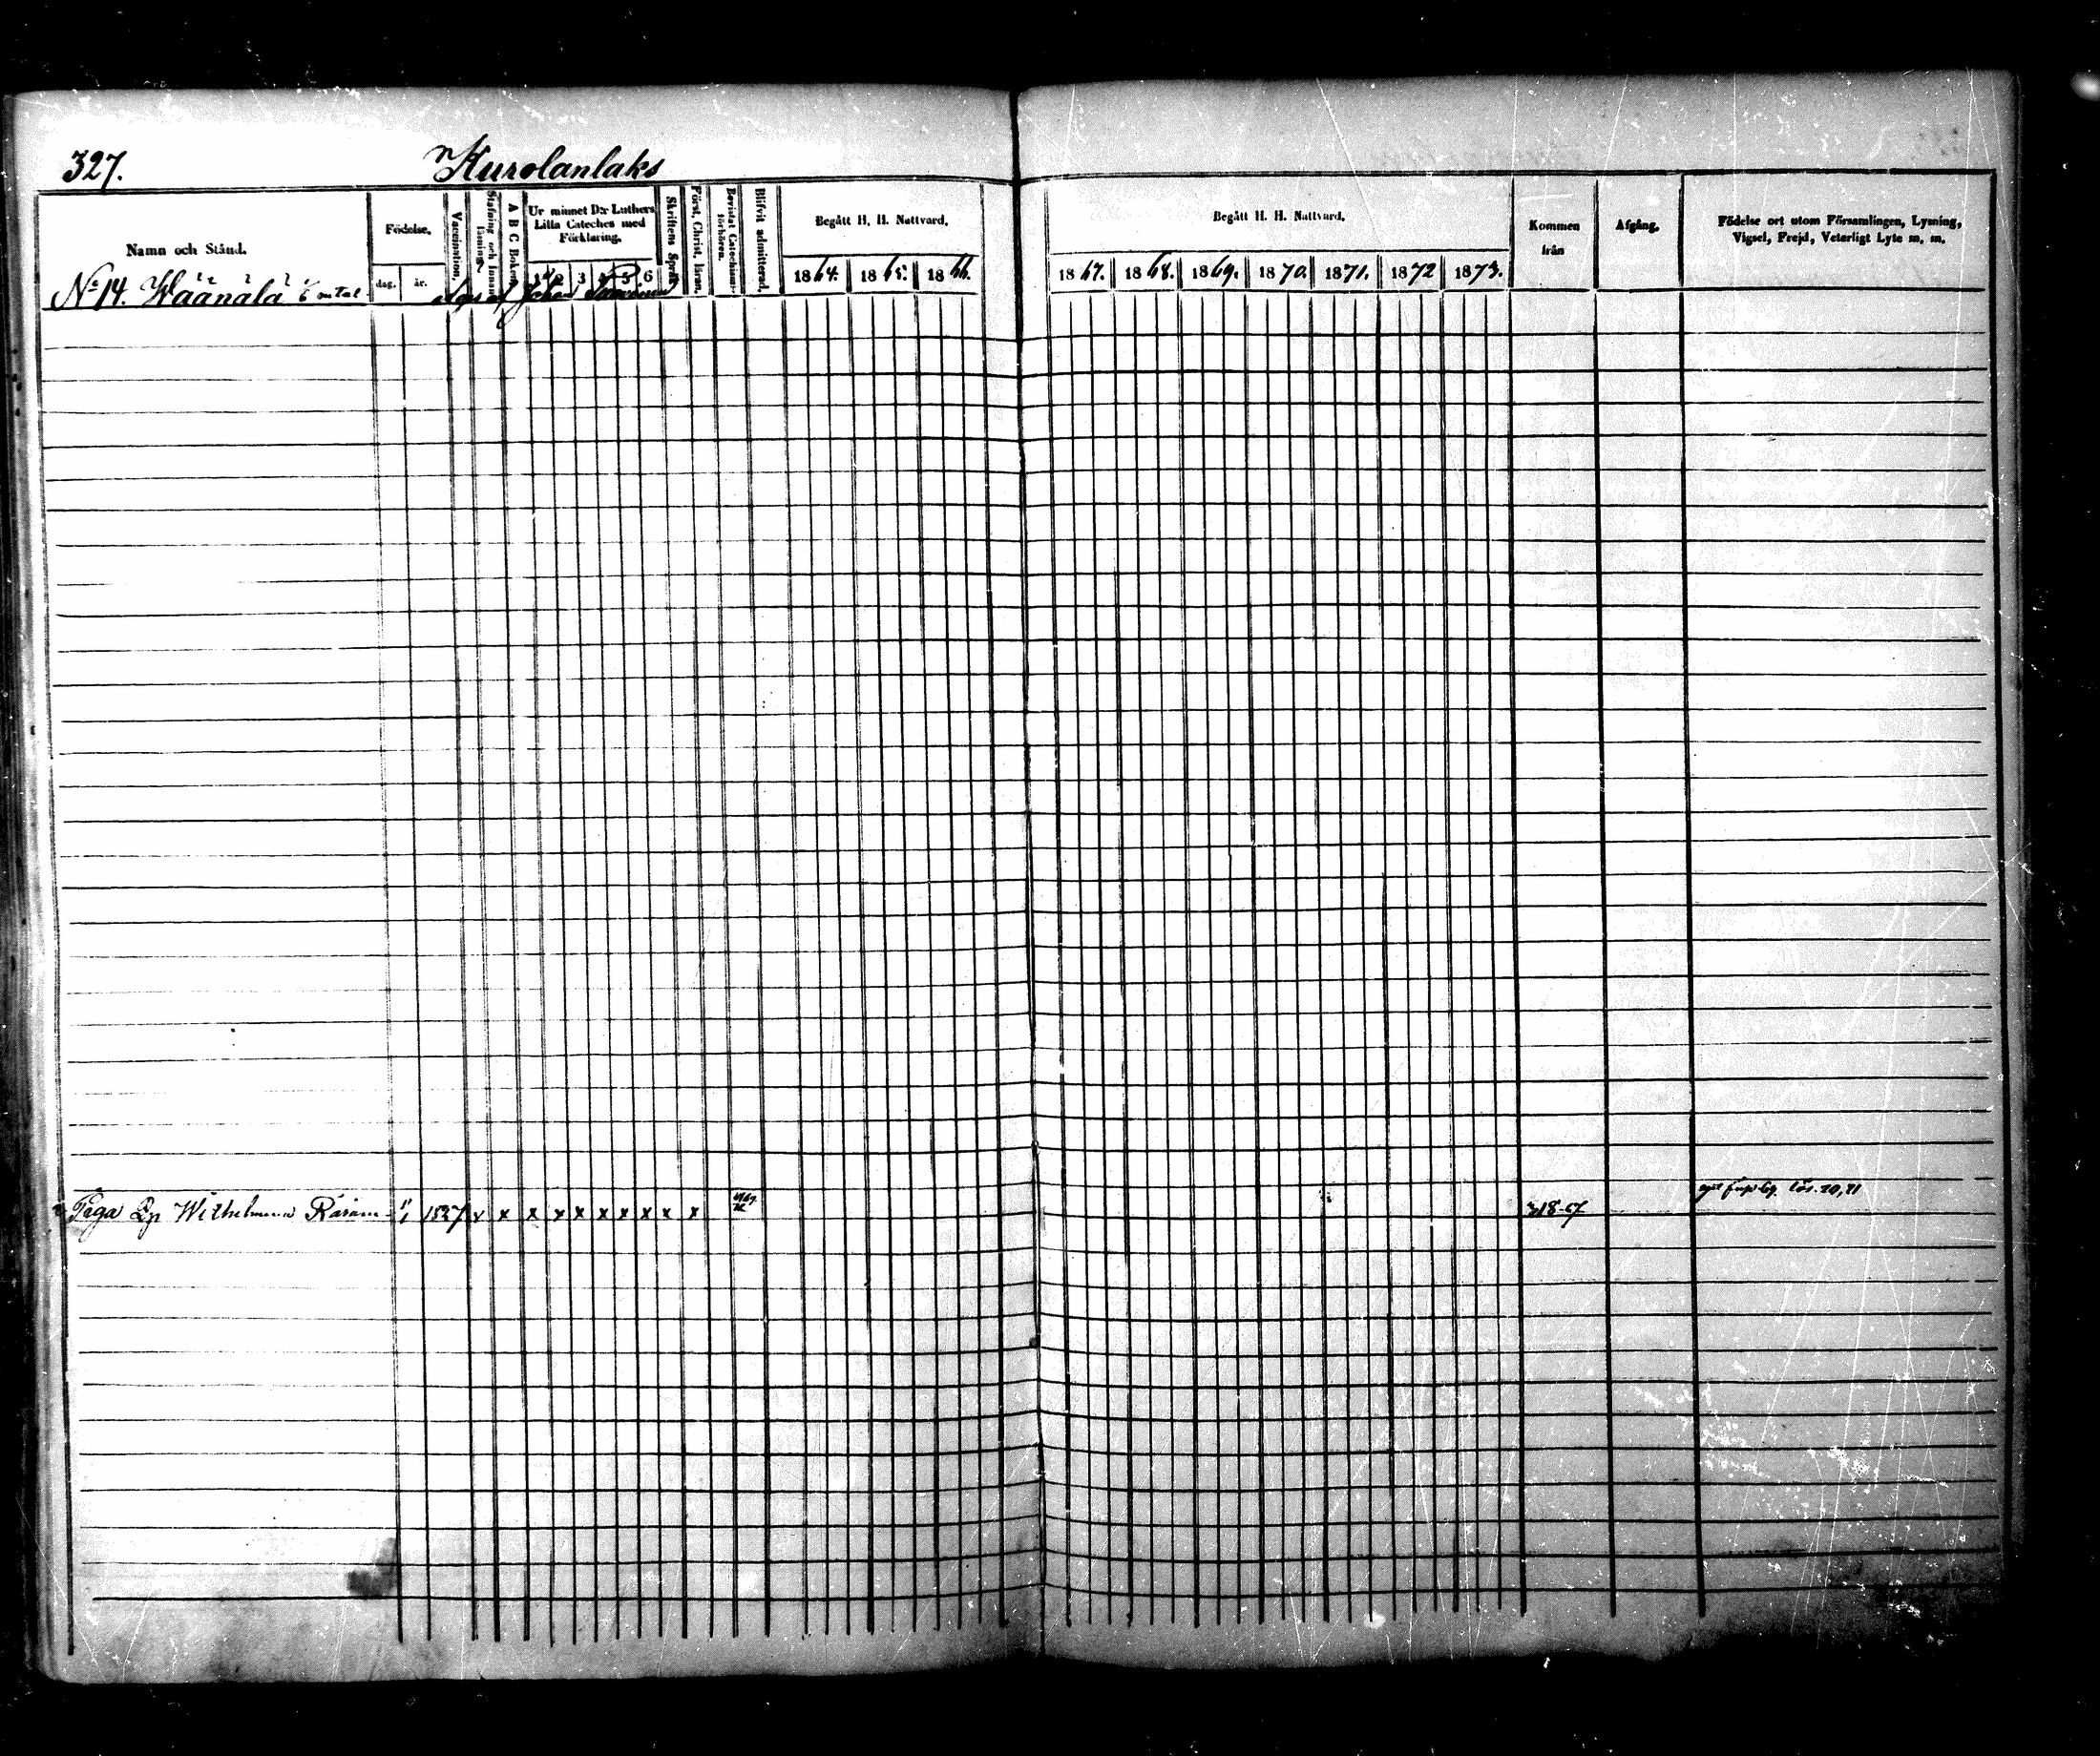 327.
Kurolanlaks
Namn och Stånd.
Födelse.
dag.
år.
Vaccination.
Stafning och Innanläsning.
A B C Boken.
Ur minnet D:r Luthers
Lilla Cateches med
Förklaring.
3 4 5 6
Skriftens Språk.
Först. Christ. läran.
Bevistat Catechismiförhören.
Blifvit admitterad.
Begått H. H. Nattvard.
1864. 1865. 1866.
Begått H. H. Nattvard.
1867. 1868. 1869. 1870. 1871. 1872 1873.
Kommen
från
Afgång.
Födelse ort utom Församlingen, Lysning,
Vigsel, Frejd, Veterligt Lyte m. m.
No 14. Wäänälä 1/6 mtal
Äges af Johan
Piga Wilhelmina Räsän 1837 x x x x x x x x x x
318-67